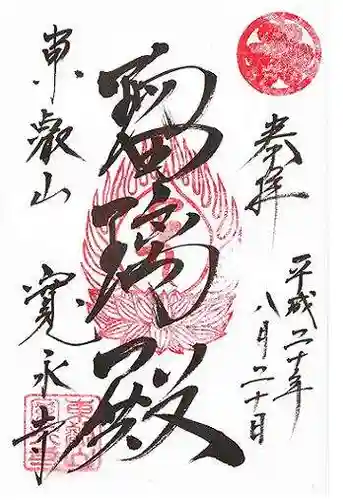 奉拝
平成二十年
八月二十日
瑠璃殿
東叡山
寛永寺